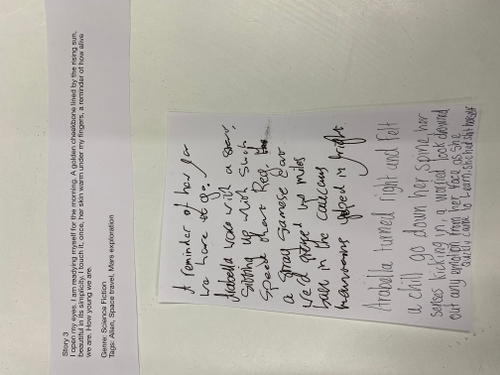 Story 3
I open my eyes. I am readying myself for the morning. A golden cheekbone lined by the rising sun,
beautiful in its simplicity. I touch it, once, her skin warm under my fingers, a reminder of how alive
we are. How young we are.
Genre: Science Fiction
Tags: Alien, Space travel, Mars exploration
A reminder of how far
we have to go.
Arabella woke with a
up which such
speed that Red,
a stray Siamese
we'd up miles
back in the
in fright
Arabella turned right and felt
a chill go down her spine her
senses kicking in, a worried look drowned
out any emotion from her face as she
quickly came to learn she had shit herself